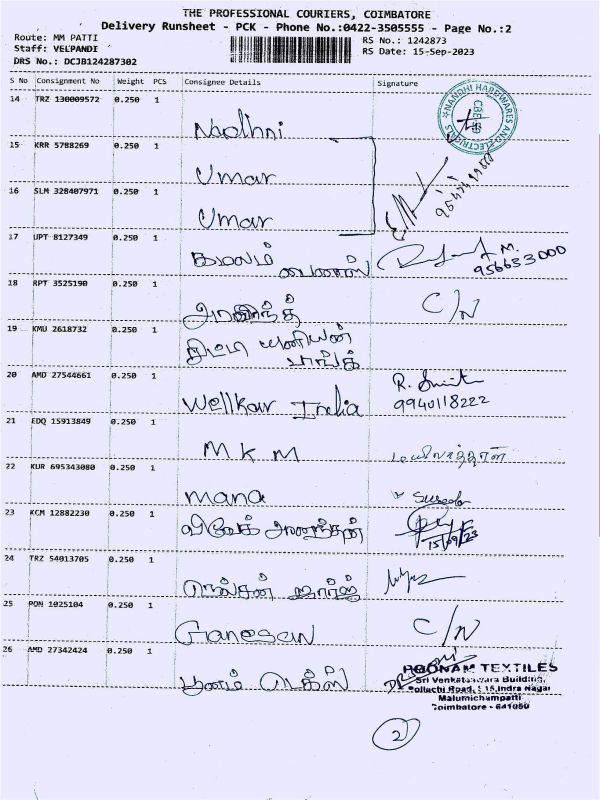 THE PROFESSIONAL COURIERS, COIMBATORE
Delivery Runsheet - PCK - Phone No.:0422-3505555 - Page No.:2
Route: MM PATTI RS No.: 1242873
Staff: VELPANDI RS Date: 15-Sep-2023
DRS No.: DCJB124287302
S No Consignment No Weight PCS Consignee Details Signature
14 TRZ 130009572 0.250 1
NANDHI HARDWARES AND ELECTRICALS
CBE
15 KRR 5788269 0.250 1
Umar
16 SLM 328407971 0.250 1
Umar
17 UPT 8127349 0.250 1
M.
18 RPT 3525190 0.250 1
அரவிந்த் C/N
19 KMU 2618732 0.250 1
யூனியன்
20 AMD 27544661 0.250 1
Wellkar India R. Smith
9940118222
21 EDQ 15913849 0.250 1
M K M
22 KUR 695343080 0.250 1
Mana Suresh
23 KCM 12882230 0.250 1
விவேக் அனந்தன்
15/09/23
24 TRZ 54013705 0.250 1
ஜார்ஜ்
25 PON 1025104 0.250 1
Ganesan C/N
26 AMD 27342424 0.250 1
பூனம் டெக்ஸ் POONAM TEXTILES
Sri Venkateswara Building,
Pollachi Road, Indra Nagar
Malumichampatti
Coimbatore - 641050
2